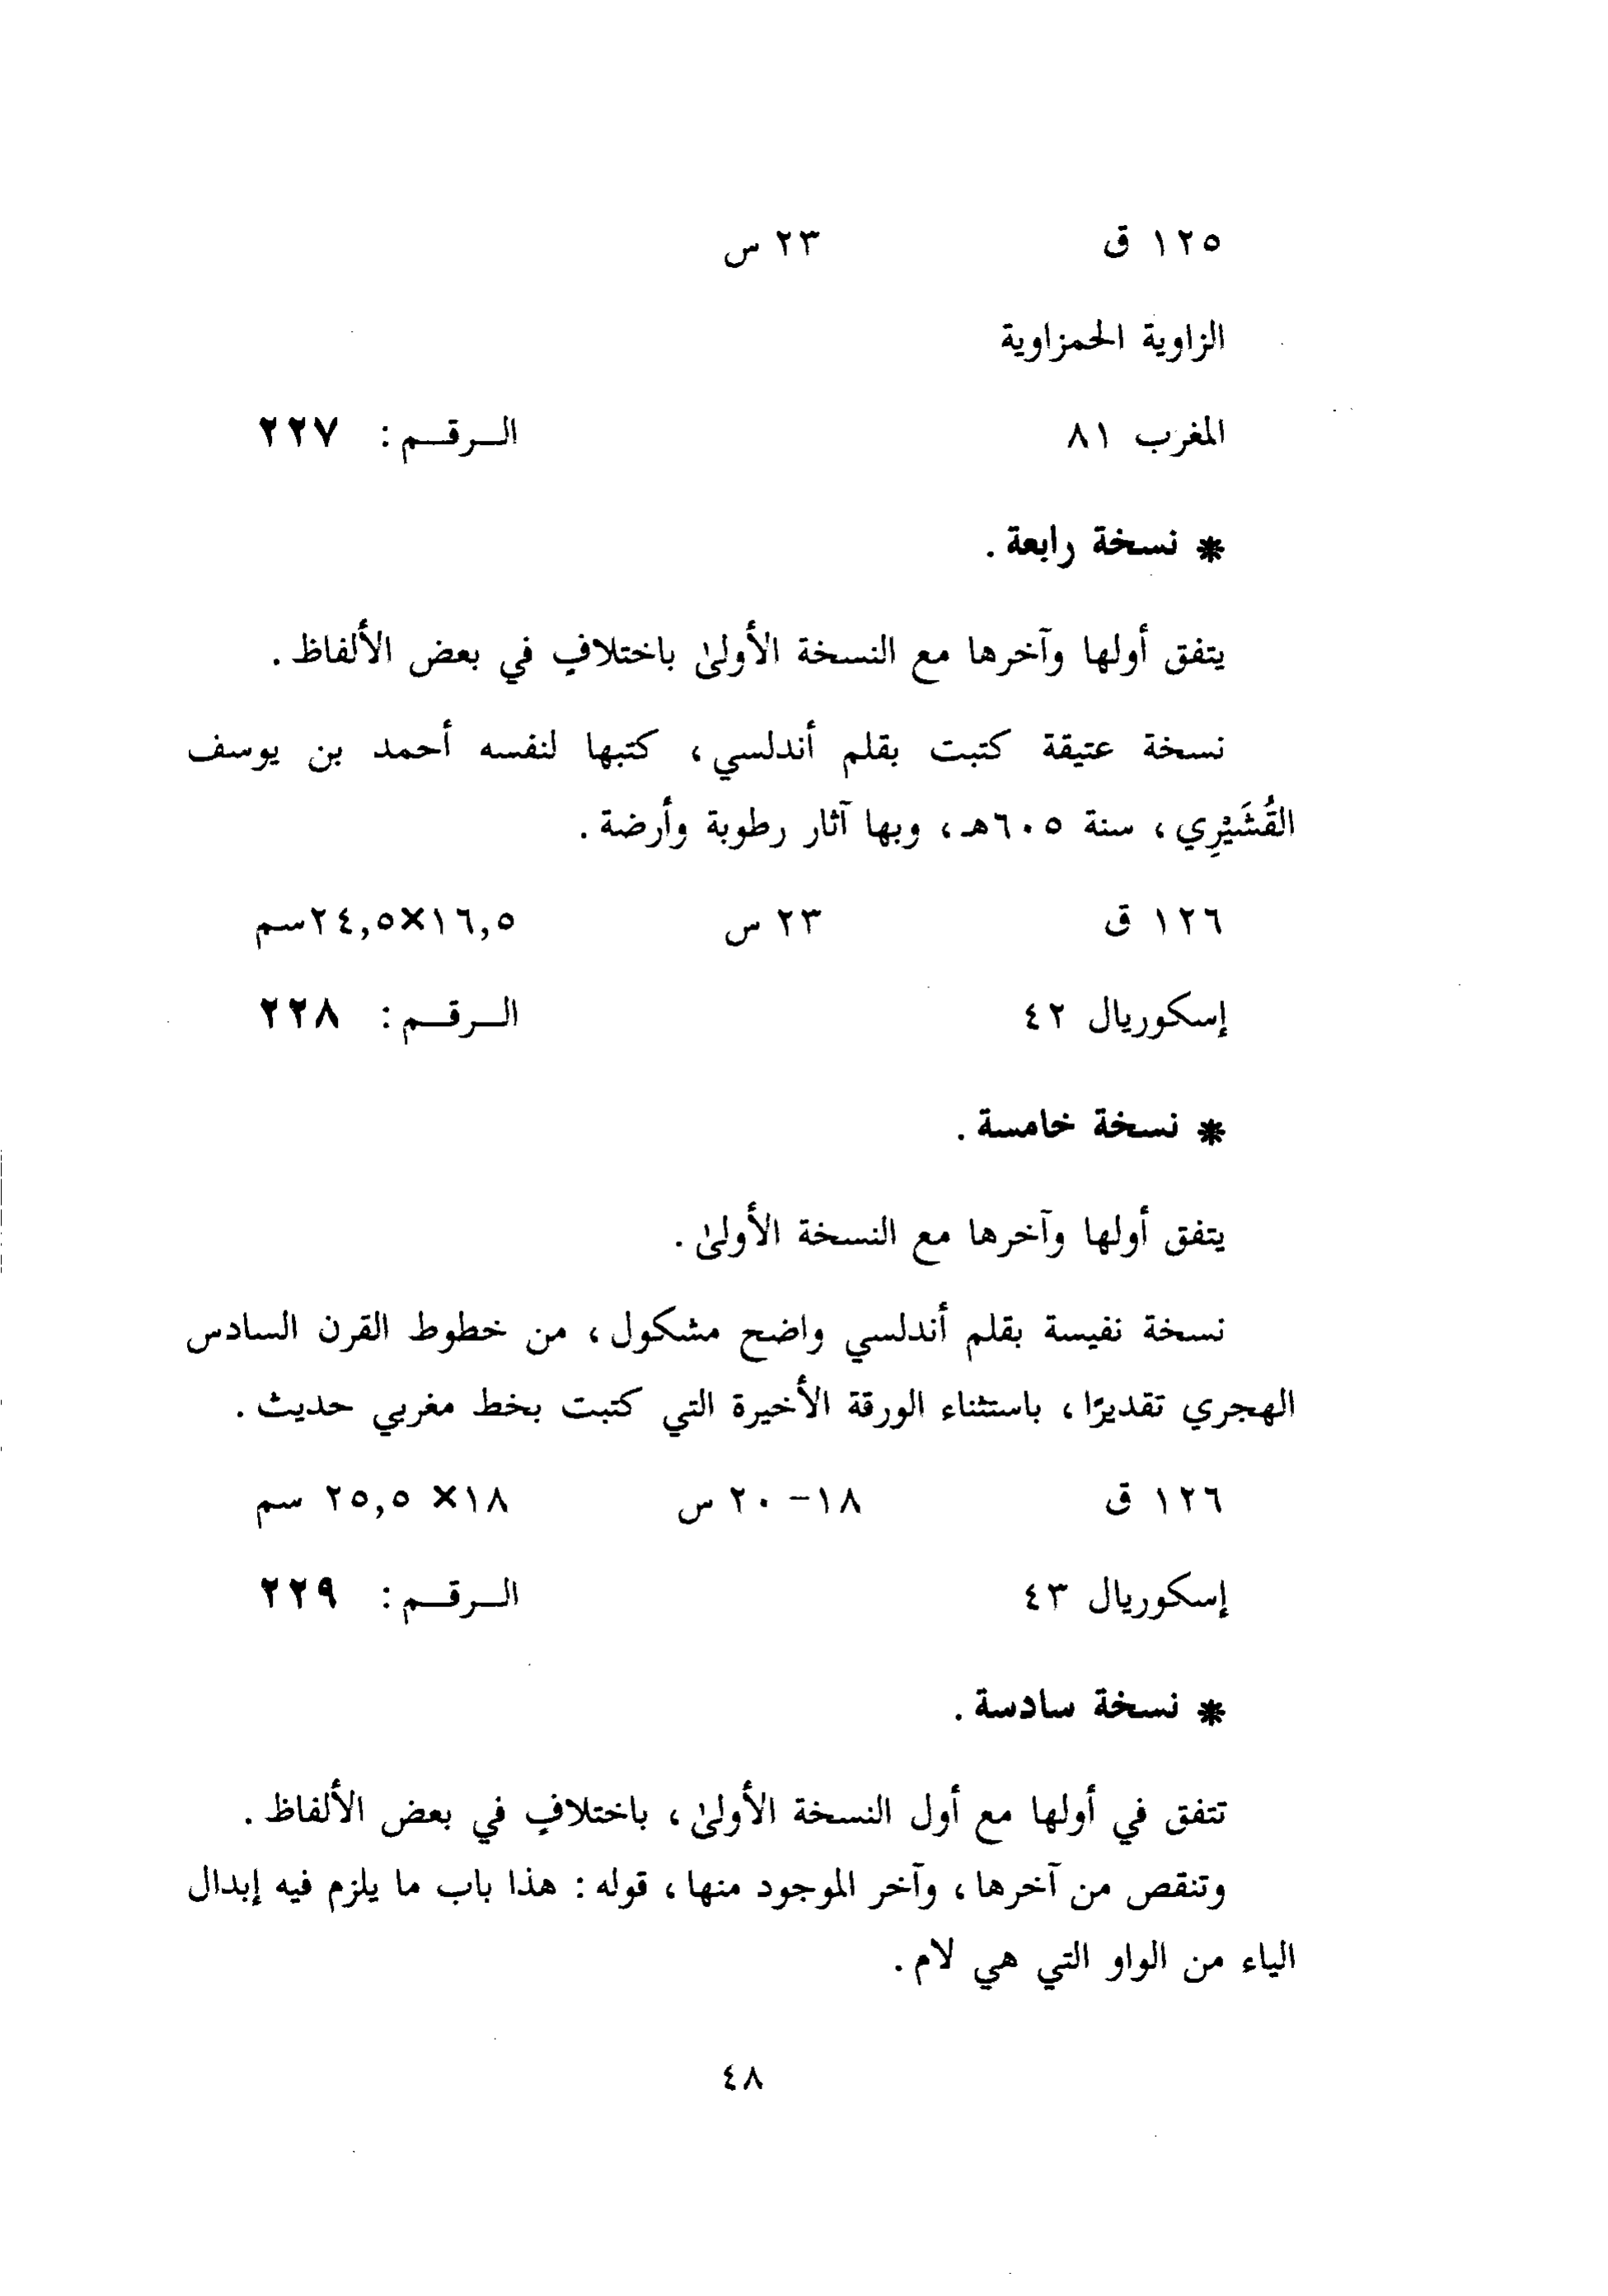 ١٢٥ ق ٢٣ س
الزاوية الحمزاوية
المغرب ٨١ الـرقـم : ٢٢٧
* نسخة رابعة .
يتفق أولها وآخرها مع النسخة الأولىٰ باختلافٍ في بعض الألفاظ .
نسخة عتيقة كتبت بقلم أندلسي ، كتبها لنفسه أحمد بن يوسف
القُشَيْرِي ، سنة ٦٠٥هـ ، وبها آثار رطوبة وأرضة .
١٢٦ ق ٢٣ س ١٦,٥×٢٤,٥سم
إسكوريال ٤٢ الـرقـم : ٢٢٨
* نسخة خامسة .
يتفق أولها وآخرها مع النسخة الأولىٰ .
نسخة نفيسة بقلم أندلسي واضح مشكول ، من خطوط القرن السادس
الهجري تقديرًا ، باستثناء الورقة الأخيرة التي كتبت بخط مغربي حديث .
١٢٦ ق ١٨– ٢٠ س ١٨× ٢٥,٥ سم
إسكوريال ٤٣ الـرقـم : ٢٢٩
* نسخة سادسة .
تتفق في أولها مع أول النسخة الأولىٰ ، باختلافٍ في بعض الألفاظ .
وتنقص من آخرها ، وآخر الموجود منها ، قوله : هذا باب ما يلزم فيه إبدال
الياء من الواو التي هي لام .
٤٨